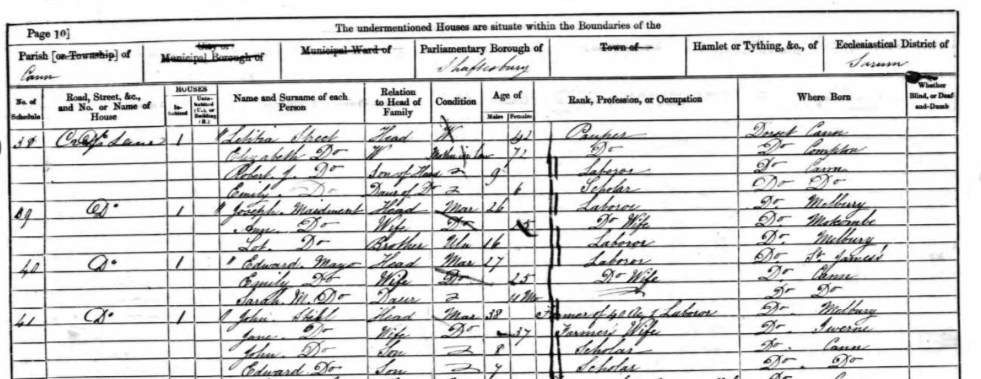 Page 10] The undermentioned Houses are situate within the Boundaries of the
Parish [or Township] of City or Municipal Borough of Municipal Ward of Parliamentary Borough of Town of Hamlet or Tything, &c., of Ecclesiastical District of
Cann Shaftesbury Sarum
No. of Schedule Road, Street, &c., and No. or Name of House HOUSES Inhabited Uninhabited (U.), or Building (B.) Name and Surname of each Person Relation to Head of Family Condition Age of Males Females Rank, Profession, or Occupation Where Born Whether Blind, or Deaf-and-Dumb
38 Lane 1 Letitia Head W 42 Pauper Dorset Cann
Elizabeth Do W Mother in law 72 Do Do Compton
Robert J. Do Son of Head 9 Laborer Do Cann
Emily Do Daur of Do 6 Scholar Do Do
39 Do 1 Joseph Maidment Head Mar 26 Laborer Do Melbury
Ann Do Wife Do Do Wife Do
Lot Do Brother Un 16 Laborer Do Melbury
40 Do 1 Edward Mayo Head Mar 27 Laborer Do St James's
Emily Do Wife Do 25 Do Wife Do Cann
Sarah M. Do Daur 4 Mo Do Do
41 Do 1 John Head Mar 38 Farmer of 40 Ac & Laboror Do Melbury
Jane Do Wife Do 37 Farmers Wife Do Iwerne
John Do Son 8 Scholar Do Cann
Edward Do Son 7 Scholar Do Do